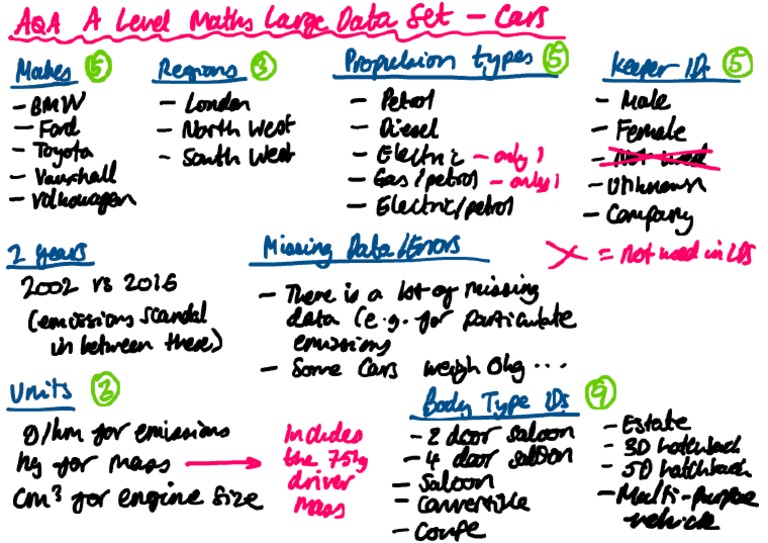 AQA A Level Maths Large Data Set – Cars
Makes 5
– BMW
– Ford
– Toyota
– Vauxhall
– Volkswagen
Regions 3
– London
– North West
– South West
Propulsion types 5
– Petrol
– Diesel
– Electric – only 1
– Gas/petrol – only 1
– Electric/petrol
Keeper IDs 5
– Male
– Female
– Not used
– Unknown
– Company
X = Not used in LDS
2 years
2002 vs 2016
(emissions scandal
in between these)
Missing Data/Errors
– There is a lot of missing
data (e.g. for particulate
emissions
– Some cars weigh 0kg ...
Units 3
g/km for emissions
kg for mass
cm³ for engine size
Includes
the 75kg
driver
mass
Body Type IDs 9
– 2 door saloon
– 4 door saloon
– Saloon
– Convertible
– Coupe
– Estate
– 3D hatchback
– 5D hatchback
– Multi-purpose
vehicle